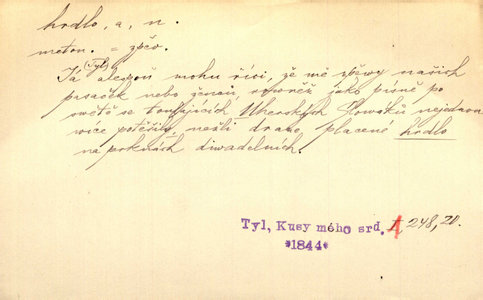 hrdlo, a, n.
meton. = zpěv.
(Tyl)
Já alespoň mohu říci, že mě zpěwy našich
pasaček nebo ženců, rovněž jako písně po
světě se toulajících Uherských Slowáků nejednou
více potěšily, nežli draze placené hrdlo
na prknách diwadelních.
Tyl, Kusy mého srd. I 248, 20.
*1844*